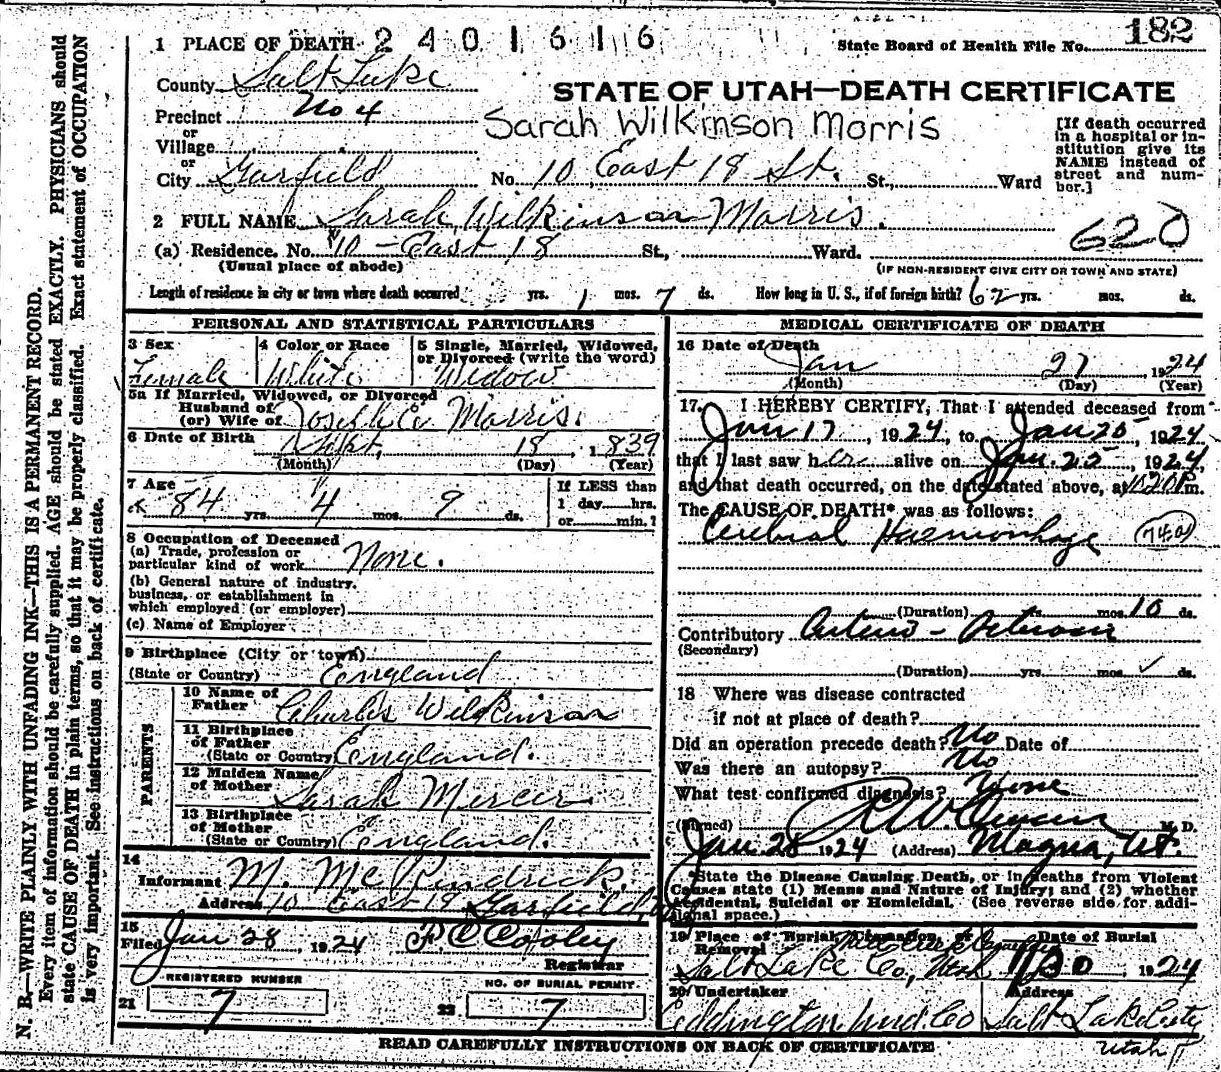 182
1 PLACE OF DEATH 2 4 0 1 6 1 6
State Board of Health File No.
County Salt Lake
STATE OF UTAH—DEATH CERTIFICATE
Precinct No 4
Sarah Wilkinson Morris
or
Village
or
City Garfield No. 10 East 18 St. St., Ward
[If death occurred
in a hospital or in-
stitution give its
NAME instead of
street and num-
ber.]
2 FULL NAME Sarah Wilkinson Morris.
620
(a) Residence. No. 10 - East 18 St., Ward.
(Usual place of abode) (IF NON-RESIDENT GIVE CITY OR TOWN AND STATE)
Length of residence in city or town where death occurred yrs. 1 mos. 7 ds. How long in U. S., if of foreign birth? 62 yrs. mos. ds.
PERSONAL AND STATISTICAL PARTICULARS
3 Sex
Female
4 Color or Race
White
5 Single, Married, Widowed,
or Divorced (write the word)
Widow
5a If Married, Widowed, or Divorced
Husband of
(or) Wife of Morris.
6 Date of Birth Sept. 18, 1839
(Month) (Day) (Year)
7 Age
84 yrs. 4 mos. 9 ds.
If LESS than
1 day hrs.
or min.?
8 Occupation of Deceased
(a) Trade, profession or
particular kind of work None.
(b) General nature of industry,
business, or establishment in
which employed (or employer)
(c) Name of Employer
9 Birthplace (City or town)
(State or Country) England
PARENTS
10 Name of
Father Charles Wilkinson
11 Birthplace
of Father
(State or Country) England.
12 Maiden Name
of Mother Sarah Mercer
13 Birthplace
of Mother
(State or Country) England.
14
Informant M. McKendrick.
Address 10 East 18 Garfield,
15
Filed Jan 28, 1924
Registrar
REGISTERED NUMBER
21 7
NO. OF BURIAL PERMIT
22 7
MEDICAL CERTIFICATE OF DEATH
16 Date of Death
Jan 27 1924
(Month) (Day) (Year)
17. I HEREBY CERTIFY, That I attended deceased from
Jan 17, 1924, to Jan 25, 1924
that I last saw her alive on Jan. 25, 1924,
and that death occurred, on the date stated above, at m.
The CAUSE OF DEATH* was as follows:
Cerebral Haemorrhage 74a
(Duration) yrs. mos. 10 ds.
Contributory Arterio-
(Secondary)
(Duration) yrs. mos. ds.
18 Where was disease contracted
if not at place of death?
Did an operation precede death? No Date of
Was there an autopsy? No
What test confirmed diagnosis? None
(Signed) M. D.
Jan 28 1924 (Address) Magna, Ut.
*State the Disease Causing Death, or in deaths from Violent
Causes state (1) Means and Nature of Injury; and (2) whether
Accidental, Suicidal or Homicidal. (See reverse side for addi-
tional space.)
19 Place of Burial, Cremation, or Removal Date of Burial
Salt Lake Co, Utah 1/30, 1924
20 Undertaker Address
Eddington Und. Co Salt Lake City
Utah
READ CAREFULLY INSTRUCTIONS ON BACK OF CERTIFICATE
N. B.—WRITE PLAINLY WITH UNFADING INK—THIS IS A PERMANENT RECORD.
Every item of information should be carefully supplied. AGE should be stated EXACTLY. PHYSICIANS should
state CAUSE OF DEATH in plain terms, so that it may be properly classified. Exact statement of OCCUPATION
is very important. See instructions on back of certificate.